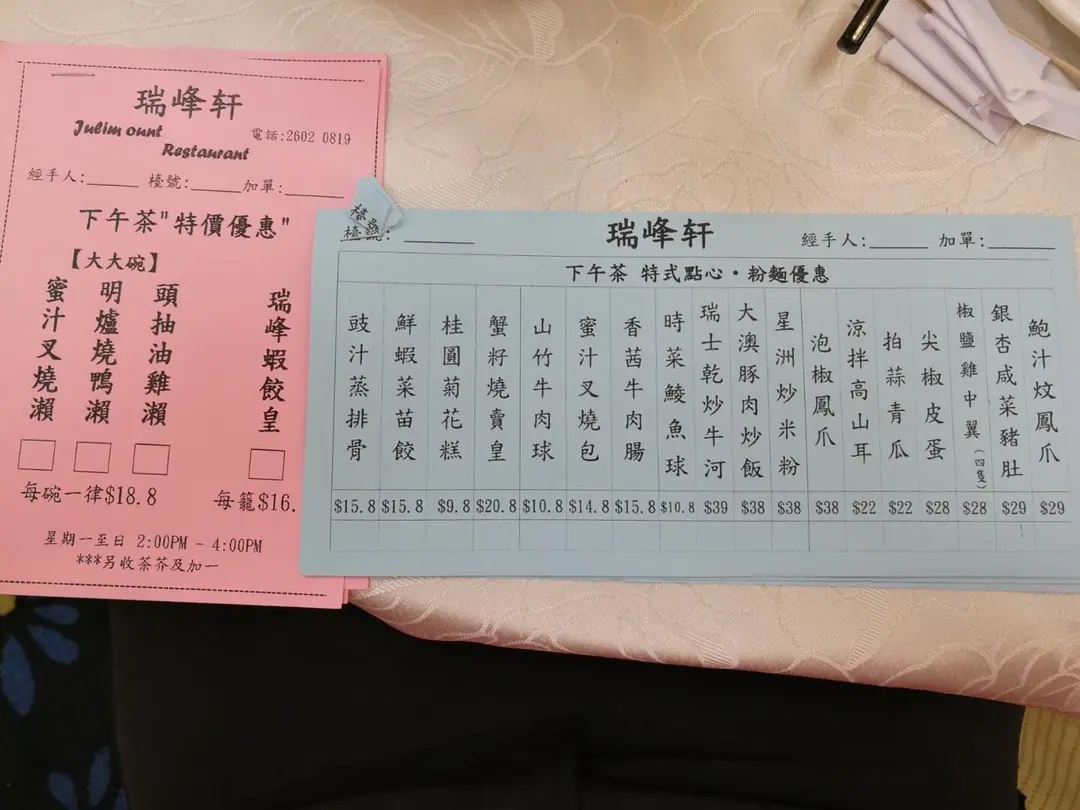 瑞峰轩
Julim ount
Restaurant
電話:2602 0819
經手人:______ 檯號:______加單:______
下午茶"特價優惠"
【大大碗】
蜜汁叉燒瀨
明爐燒鴨瀨
頭抽油雞瀨
瑞峰蝦餃皇
每碗一律$18.8
每籠$16.
星期一至日 2:00PM - 4:00PM
***另收茶芥及加一
檯號:______
瑞峰轩
經手人:______ 加單:______
下午茶 特式點心·粉麵優惠
豉汁蒸排骨
鮮蝦菜苗餃
桂圓菊花糕
蟹籽燒賣皇
山竹牛肉球
蜜汁叉燒包
香茜牛肉腸
時菜鯪魚球
瑞士乾炒牛河
大澳豚肉炒飯
星洲炒米粉
泡椒鳳爪
涼拌高山耳
拍蒜青瓜
尖椒皮蛋
椒鹽雞中翼(四隻)
銀杏咸菜豬肚
鮑汁炆鳳爪
$15.8 $15.8 $9.8 $20.8 $10.8 $14.8 $15.8 $10.8 $39 $38 $38 $38 $22 $22 $28 $28 $29 $29